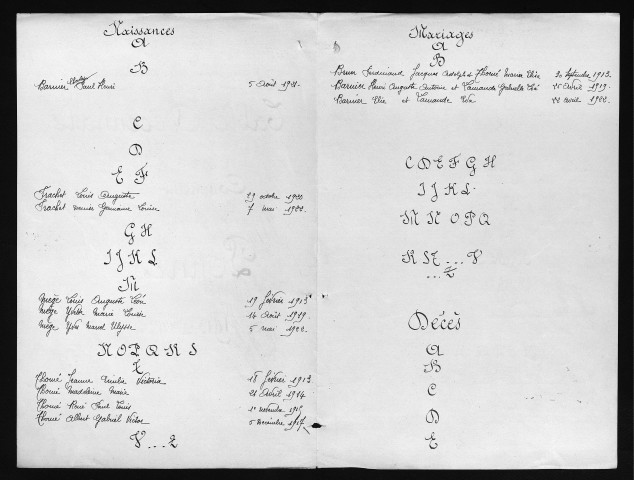 Naissances
A
B
Barnier Paul Henri 5 Août 1921.
C
D
E F
Trachet Louis Auguste 29 octobre 1920
Trachet Germaine Louise 7 mai 1922.
G H
I J K L
M
Mège Louis Auguste Léon 19 février 1913
Mège Yvette Marie Louise 14 Août 1919.
Mège Yves Maud Ulysse 5 mai 1922.
N O P Q R S
T
Thomé Jeanne Emilie Victoria 18 février 1913
Thomé Madeleine Marie 21 avril 1914
Thomé René Paul Louis 1er novembre 1915
Thomé Albert Gabriel Victor 5 1917
V...Z
Mariages
A
B
Brun Ferdinand Jacques Adolphe & Thomé Maria Elise 30 Septembre 1913.
Barnier Henri Auguste Antoine et Gabrielle 25 avril 1919.
Barnier Elie et 22 avril 1922.
C D E F G H
I J K L
M N O P Q
R S T...V
...Z
Décès
A
B
C
D
E